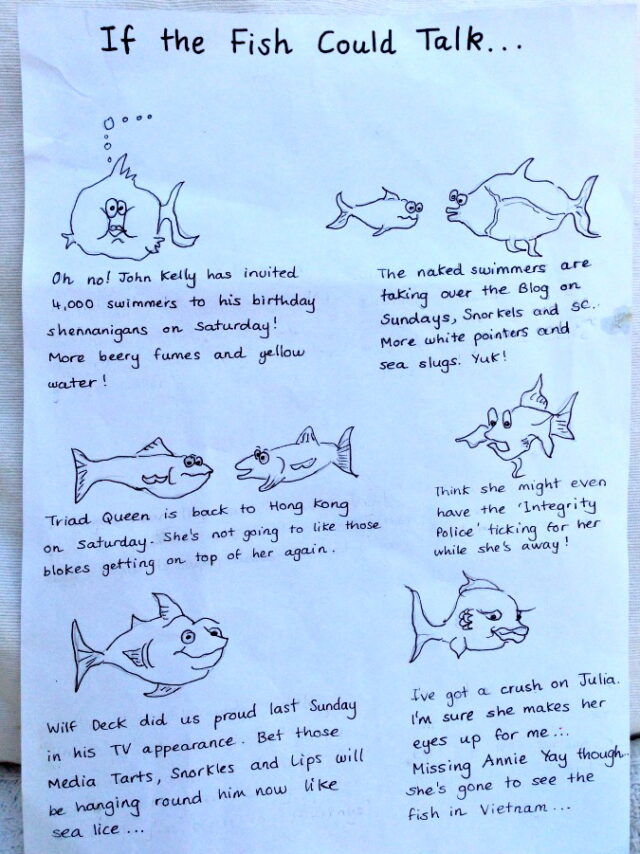 If the Fish Could Talk...
Oh no! John Kelly has invited
4,000 swimmers to his birthday
shennanigans on Saturday!
More beery fumes and yellow
water!
The naked swimmers are
taking over the Blog on
Sundays, Snorkels and SC.
More white pointers and
sea slugs. Yuk!
Triad Queen is back to Hong Kong
on Saturday. She's not going to like those
blokes getting on top of her again.
Think she might even
have the 'Integrity
Police' ticking for her
while she's away!
Wilf Deck did us proud last Sunday
in his TV appearance. Bet those
Media Tarts, Snorkles and Lips will
be hanging round him now like
sea lice...
I've got a crush on Julia.
I'm sure she makes her
eyes up for me...
Missing Annie Yay though..
she's gone to see the
fish in Vietnam...